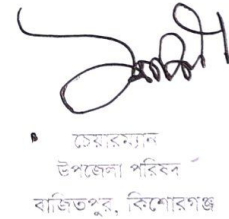 চেয়ারম্যান
উপজেলা পরিষদ
বাজিতপুর, কিশোরগঞ্জ